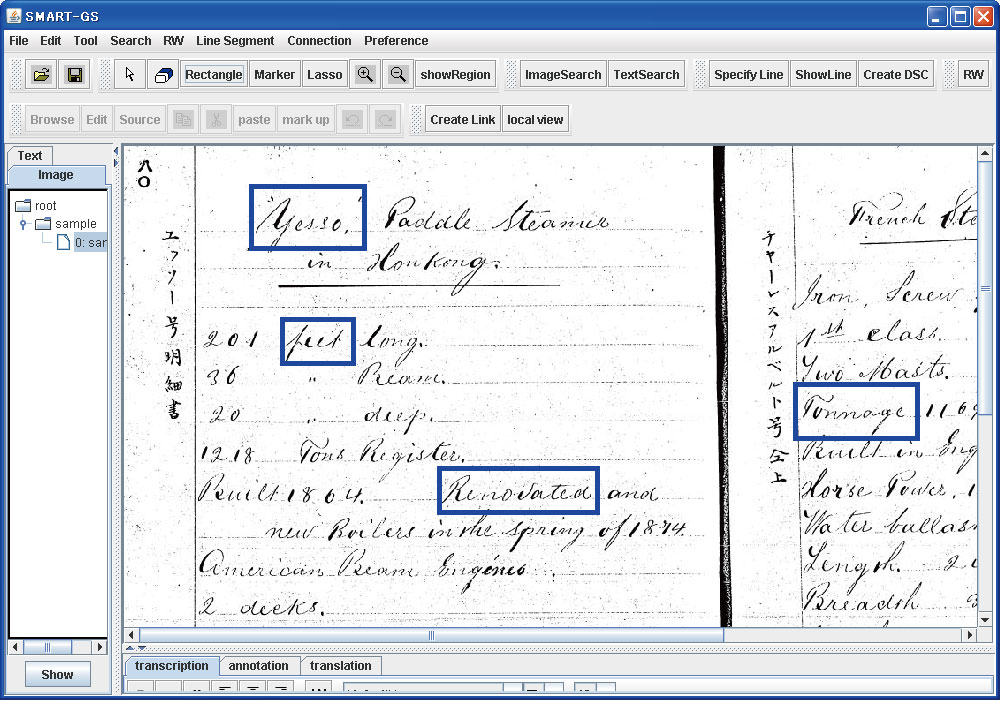 SMART-GS
File Edit Tool Search RW Line Segment Connection Preference
Rectangle Marker Lasso showRegion ImageSearch TextSearch Specify Line ShowLine Create DSC RW
Browse Edit Source paste mark up Create Link local view
Text
Image
root
sample
0: sar
Show
八〇
エッソー号明細書
"Yesso," Paddle Steamer
in Honkong.
201 feet long.
36 " Beam.
20 " deep.
1218 Tons Register.
Built 1864. Renovated and
new Boilers in the spring of 1874.
American Beam Engines.
2 decks.
チャーレスアルベルト号仝上
French Ste
Iron, Screw
1st class.
Two Masts.
Tonnage 110
Built in Eng
Horse Power, 1
Water ballas
Length. 2
Breadth
transcription annotation translation